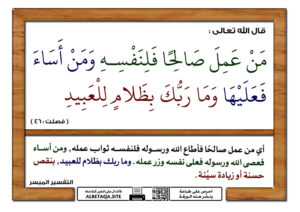 قال الله تعالى :
مَنْ عَمِلَ صَالِحًا فَلِنَفْسِهِ وَمَنْ أَسَاءَ
فَعَلَيْهَا وَمَا رَبُّكَ بِظَلَّامٍ لِلْعَبِيدِ
( فصلت : ٤٦ )
أي من عمل صالحًا فأطاع الله ورسوله فلنفسه ثواب عمله , ومن أساء
فعصى الله ورسوله فعلى نفسه وزر عمله . وما ربك بظلام للعبيد, بنقص
حسنة أو زيادة سيِّئة.
التفسير الميسر
احرص على طباعة
ونشر هذه الورقة
ALBETAQA.SITE